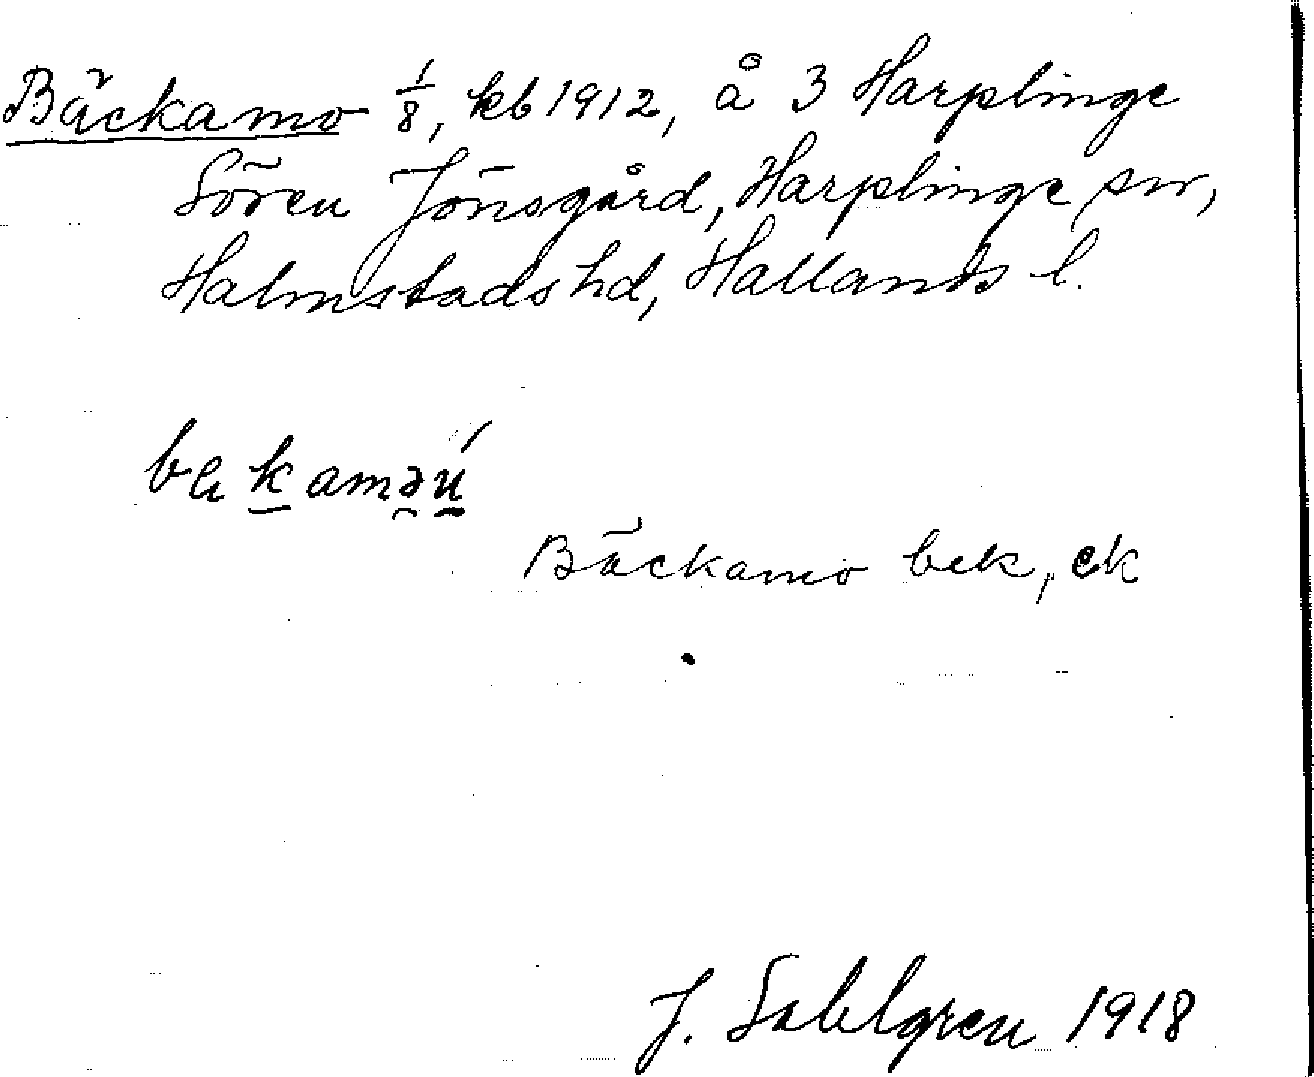 Bäckamo 1/8, kb 1912, å 3 Harplinge
Sören Jönsgård, Harplinge sn,
Halmstads hd, Hallands l.
bakaməú
Bäckamo bek, ek
J. Sahlgren 1918